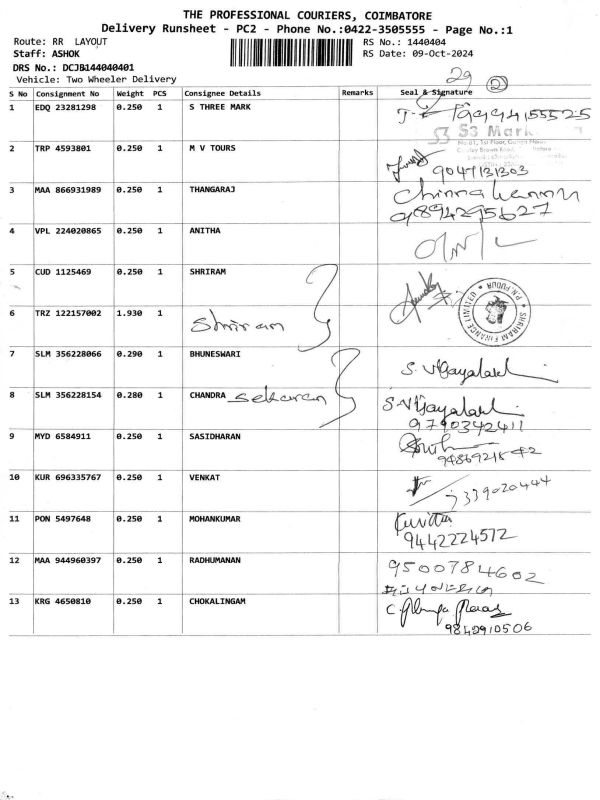 THE PROFESSIONAL COURIERS, COIMBATORE
Delivery Runsheet - PC2 - Phone No.:0422-3505555 - Page No.:1
Route: RR LAYOUT
RS No.: 1440404
Staff: ASHOK
RS Date: 09-Oct-2024
DRS No.: DCJB144040401
Vehicle: Two Wheeler Delivery
29 2
S No Consignment No Weight PCS Consignee Details Remarks Seal & Signature
1 EDQ 23281298 0.250 1 S THREE MARK
S3 S3 Mark
No.61, 1st Floor,
Cowley Brown Road,
2 TRP 4593801 0.250 1 M V TOURS
9047131303
3 MAA 866931989 0.250 1 THANGARAJ
9894295627
4 VPL 224020865 0.250 1 ANITHA
5 CUD 1125469 0.250 1 SHRIRAM
SHRIRAM FINANCE LIMITED * P.N. PUDUR *
6 TRZ 122157002 1.930 1 Shriram
7 SLM 356228066 0.290 1 BHUNESWARI S. Vijayalakl
8 SLM 356228154 0.280 1 CHANDRA sekaran S.Vijayalakl
9790342411
9 MYD 6584911 0.250 1 SASIDHARAN
10 KUR 696335767 0.250 1 VENKAT
339020444
11 PON 5497648 0.250 1 MOHANKUMAR
9442224572
12 MAA 944960397 0.250 1 RADHUMANAN 9500784602
13 KRG 4650810 0.250 1 CHOKALINGAM
9842910506